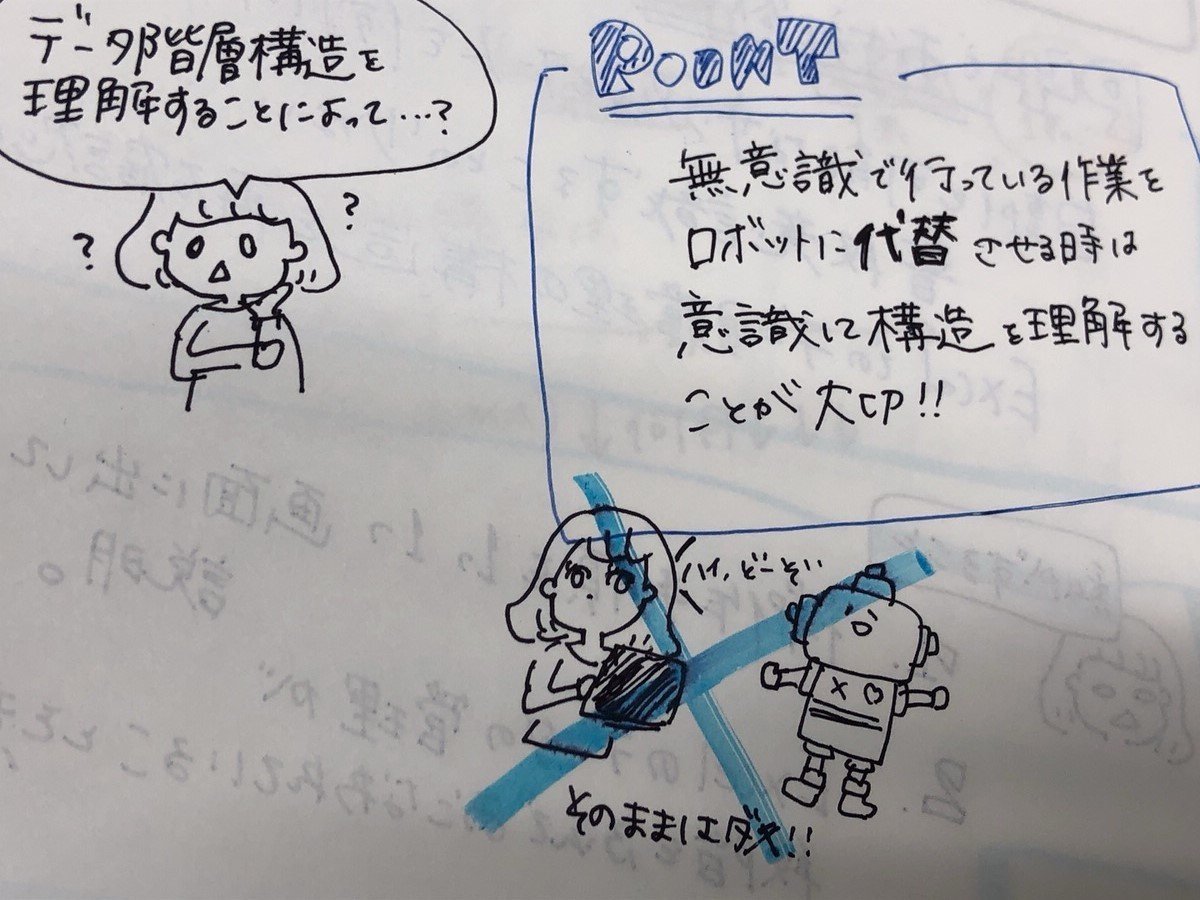 データ階層構造を
理解することによって…?
?
?
POINT
無意識で行っている作業を
ロボットに代替させる時は
意識して構造を理解する
ことが大切!!
ハイ、どーぞ..
× ○
そのままはダメ!!